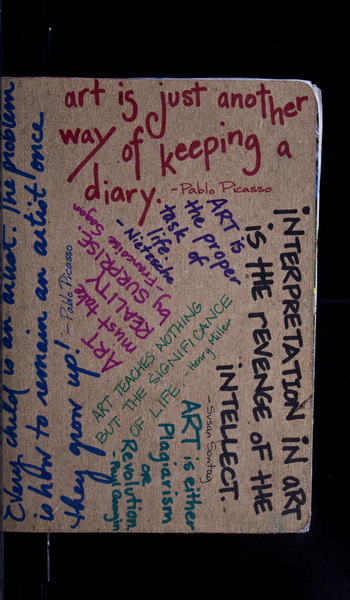 art is just another
way of keeping a
diary.
-Pablo Picasso
Every child is an artist. The problem
is how to remain an artist once
they grow up!
- Pablo Picasso
ART is
the proper
task of
life
- Nietzsche
ART
must take
REALITY
by SURPRISE!
-Francoise Sagan
INTERPRETATION IN ART
IS THE REVENGE OF THE
INTELLECT.
-Susan Sontag
ART TEACHES NOTHING
BUT THE SIGNIFICANCE
OF LIFE. - Henry Miller
ART is either
Plagiarism
OR
Revolution!
- Paul Gauguin